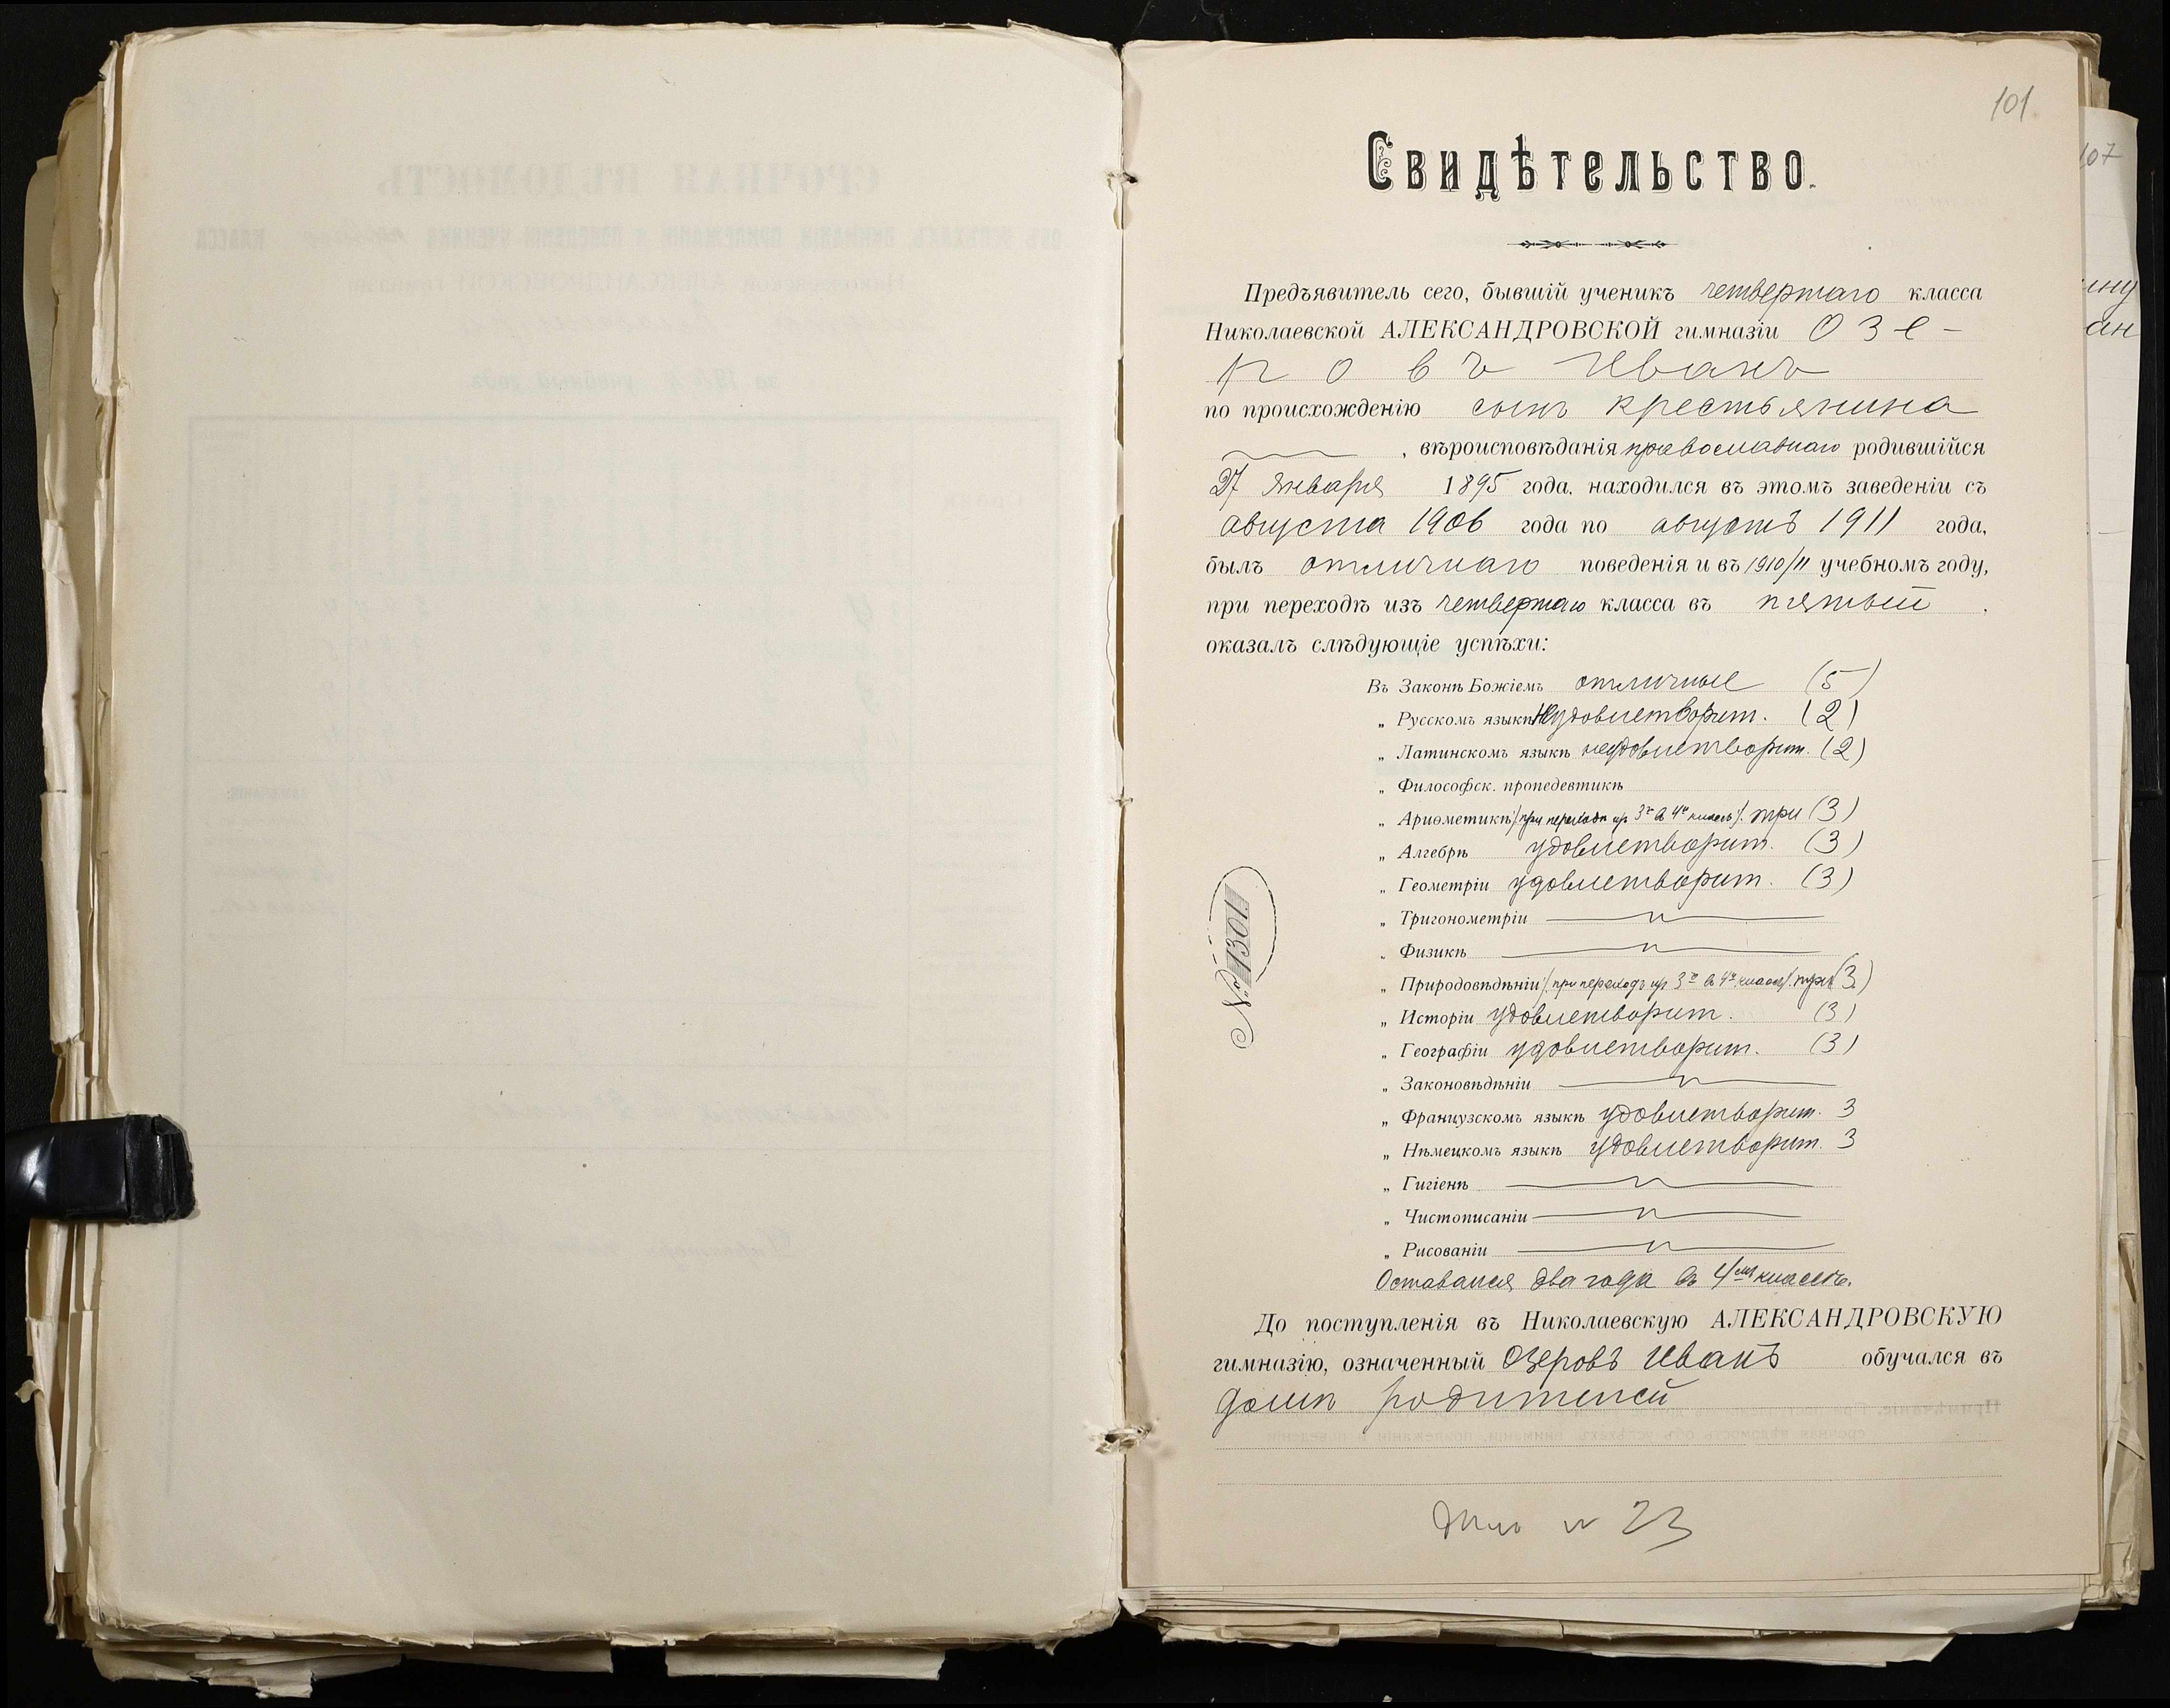 СРОЧНАЯ ВѢДОМОСТЬ
ОБЪ УСПѢХАХЪ, ВНИМАНІИ, ПРИЛЕЖАНІИ И ПОВЕДЕНІИ УЧЕНИКА КЛАССА
Николаевской АЛЕКСАНДРОВСКОЙ гимназіи
учебный годъ.
101.
107
Свидѣтельство.
Предъявитель сего, бывшій ученикъ четвертаго класса
Николаевской АЛЕКСАНДРОВСКОЙ гимназіи Озе-
ровъ Иванъ
по происхожденію сынъ крестьянина
, вѣроисповѣданія православнаго родившійся
27 января 1895 года, находился въ этомъ заведеніи съ
августа 1906 года по августъ 1911 года,
былъ отличнаго поведенія и въ 1910/11 учебномъ году,
при переходѣ изъ четвертаго класса въ пятый .
оказалъ слѣдующіе успѣхи:
Въ Законѣ Божіемъ отличные (5)
„ Русскомъ языкѣ неудовлетворит. (2)
„ Латинскомъ языкѣ неудовлетворит. (2)
„ Философск. пропедевтикѣ
„ Ариѳметикѣ /при переходѣ изъ 3го въ 4й классъ/. три (3)
„ Алгебрѣ удовлетворит. (3)
„ Геометріи удовлетворит. (3)
„ Тригонометріи — „ —
„ Физикѣ — „ —
„ Природовѣдѣніи /при переходѣ изъ 3го въ 4й классъ/. три (3)
„ Исторіи удовлетворит. (3)
„ Географіи удовлетворит. (3)
„ Законовѣдѣніи — „ —
„ Французскомъ языкѣ удовлетворит. 3
„ Нѣмецкомъ языкѣ удовлетворит. 3
„ Гигіенѣ — „ —
„ Чистописаніи — „ —
„ Рисованіи — „ —
Оставался два года въ 4мъ классѣ.
До поступленія въ Николаевскую АЛЕКСАНДРОВСКУЮ
гимназію, означенный Озеровъ Иванъ обучался въ
домѣ родителей
Дѣло № 23
№ 1301